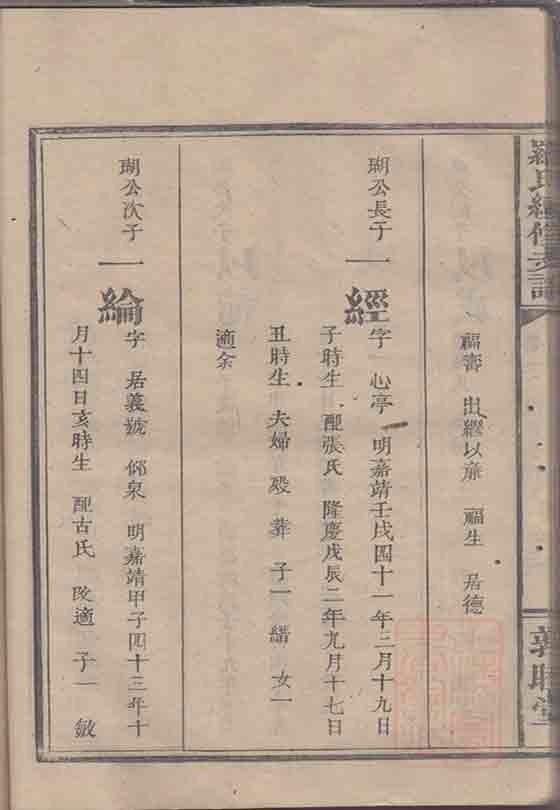 氏經修支譜
福壽 出繼以 福生 居德
瑚公長子 一經 字 心亭 明嘉靖壬戌四十一年三月十九日
子時生 配張氏 隆慶戊辰二年九月十七日
丑時生 夫婦歿葬 子一 縉 女一
適余
瑚公次子 一綸 字 居義號 泉 明嘉靖甲子四十三年十
月十四日亥時生 配古氏 歿適 子一 敏